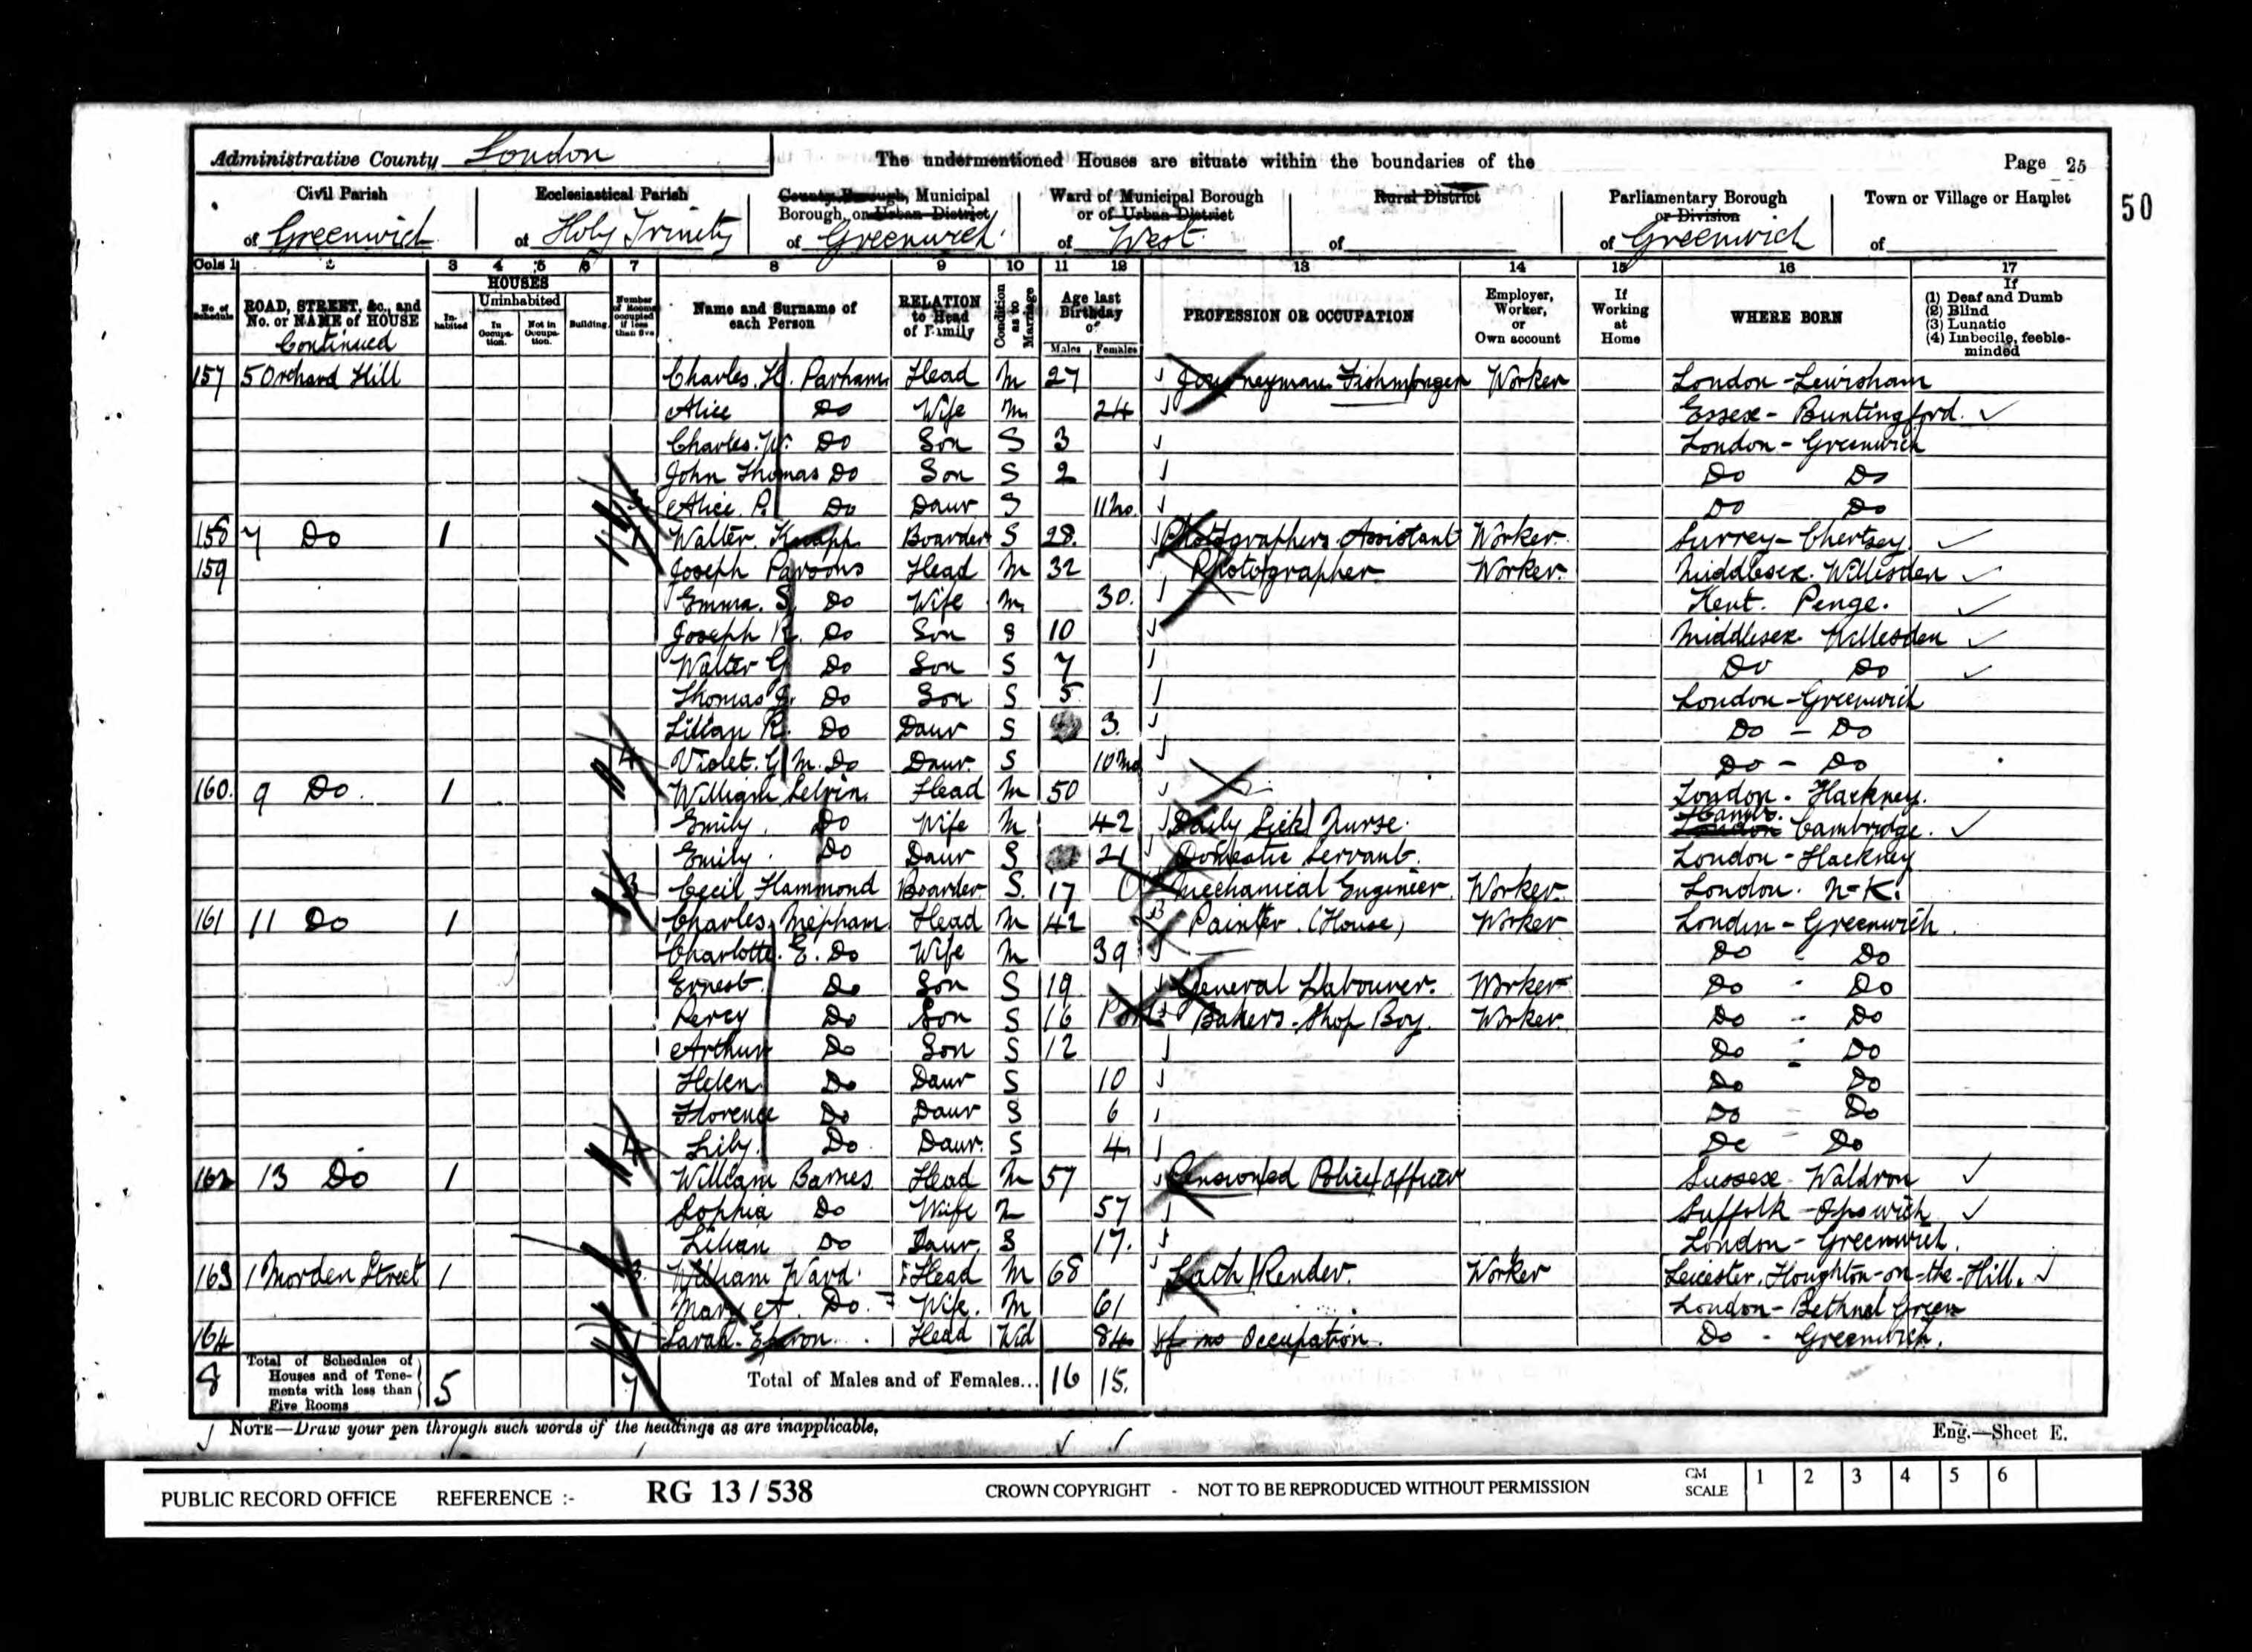 Administrative County London
The undermentioned Houses are situate within the boundaries of the
Page 25
50
Civil Parish
of Greenwich
Ecclesiastical Parish
of Holy Trinity
County Borough, Municipal
Borough, or Urban District
of Greenwich
Ward of Municipal Borough
or of Urban District
of West
Rural District
of
Parliamentary Borough
or Division
of Greenwich
Town or Village or Hamlet
of
Cols 1 2 3 4 5 6 7 8 9 10 11 12 13 14 15 16 17
No. of Schedule
ROAD, STREET, &c., and No. or NAME of HOUSE
Continued
HOUSES
Inhabited
Uninhabited
In Occupation.
Not in Occupation.
Building.
Number of Rooms occupied if less than five
Name and Surname of each Person
RELATION to Head of Family
Condition as to Marriage
Age last Birthday of
Males Females
PROFESSION OR OCCUPATION
Employer, Worker, or Own account
If Working at Home
WHERE BORN
If
(1) Deaf and Dumb
(2) Blind
(3) Lunatic
(4) Imbecile, feeble-minded
157 5 Orchard Hill Charles. H. Parham Head M 27 Journeyman Fishmonger Worker London - Lewisham
Alice Do Wife M 24 Essex - Buntingford.
Charles. W. Do Son S 3 London - Greenwich
John Thomas Do Son S 2 Do Do
Alice. R. Do Daur S 11 Mo. Do Do
158 7 Do 1 1 Walter. Knapp Boarder S 28. Photographers Assistant Worker. Surrey - Chertsey
159 Joseph Parsons Head M 32 Photographer Worker. Middlesex. Willesden
Emma. S. Do Wife M 30. Kent. Penge.
Joseph R. Do Son S 10 Middlesex Willesden
Walter G Do Son S 7 Do Do
Thomas G. Do Son S 5 London - Greenwich
Lilian R. Do Daur S 3. Do - Do
4 Violet. G. M. Do Daur. S 10 Mo Do - Do
160. 9 Do. 1 William Selvin. Head M 50 London. Hackney.
Emily. Do Wife M 42 Daily Sick Nurse. Cambs. London Cambridge.
Emily. Do Daur S 21 Domestic Servant. London - Hackney
3 Cecil Hammond Boarder S. 17 Mechanical Engineer Worker. London. N-K.
161 11 Do 1 Charles Mepham Head M 42 Painter. (House) Worker London - Greenwich.
Charlotte. E. Do Wife M 39 Do - Do
Ernest. Do Son S 19 General Labourer. Worker Do - Do
Percy Do Son S 16 Bakers. Shop Boy. Worker Do - Do
Arthur Do Son S 12 Do - Do
Helen Do Daur S 10 Do - Do
Florence Do Daur S 6 Do - Do
4 Lily. Do Daur. S 4 Do Do
162 13 Do 1 William Barnes Head M 57 Pensioned Police Officer Sussex Waldron
Sophia Do Wife M 57 Suffolk - Ipswich
Lilian Do Daur. S 17. London - Greenwich.
163 1 Morden Street 1 3 William Ward Head M 68 Lath Render. Worker Leicester, Houghton-on-the-Hill.
Mary et. Do. Wife. M 61 London - Bethnal Green
164 1 Sarah Head Wid 84 of no Occupation. Do - Greenwich.
8 Total of Schedules of Houses and of Tenements with less than Five Rooms 5 7 Total of Males and of Females... 16 15.
NOTE—Draw your pen through such words of the headings as are inapplicable.
Eng.—Sheet E.
PUBLIC RECORD OFFICE REFERENCE :- RG 13 / 538 CROWN COPYRIGHT - NOT TO BE REPRODUCED WITHOUT PERMISSION CM SCALE 1 2 3 4 5 6